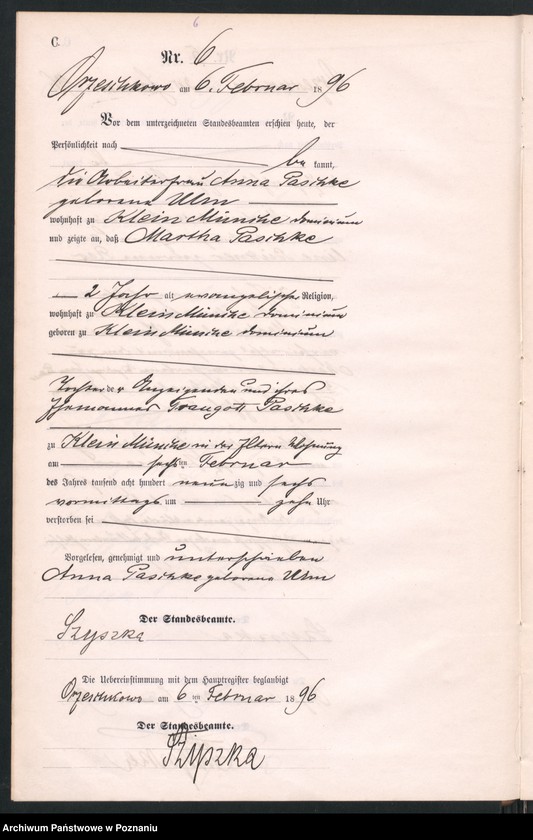 6
C.
Nr. 6
Orzeschkowo am 6. Februar 1896
Vor dem unterzeichneten Standesbeamten erschien heute, der
Persönlichkeit nach be kannt,
die Arbeiterfrau Anna Paschke
geborene Ulm
wohnhaft zu Klein Münche dominium
und zeigte an, daß Martha Paschke
2 Jahr alt evangelischer Religion,
wohnhaft zu Klein Münche dominium
geboren zu Klein Münche dominium
Tochter der Anzeigenden und ihres
Ehemannes Traugott Paschke
zu Klein Münche in der Eltern Wohnung
am sechsten Februar
des Jahres tausend acht hundert neunzig und sechs
vormittags um zehn Uhr
verstorben sei
Vorgelesen, genehmigt und unterschrieben
Anna Paschke geborene Ulm
Der Standesbeamte.
Szyszka
Die Uebereinstimmung mit dem Hauptregister beglaubigt
Orzeschkowo am 6 ten Februar 1896
Der Standesbeamte.
Szyszka
Archiwum Państwowe w Poznaniu